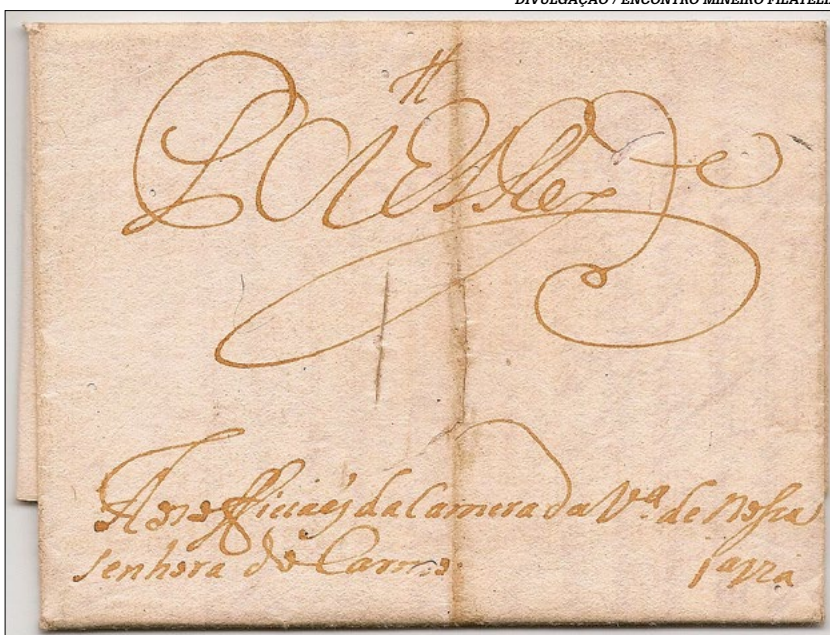 DIVULGAÇÃO / ENCONTRO MINEIRO FILATELI
Aos officiaes da Camera da Vª de Nossa
senhora do Carmo. 1ª via